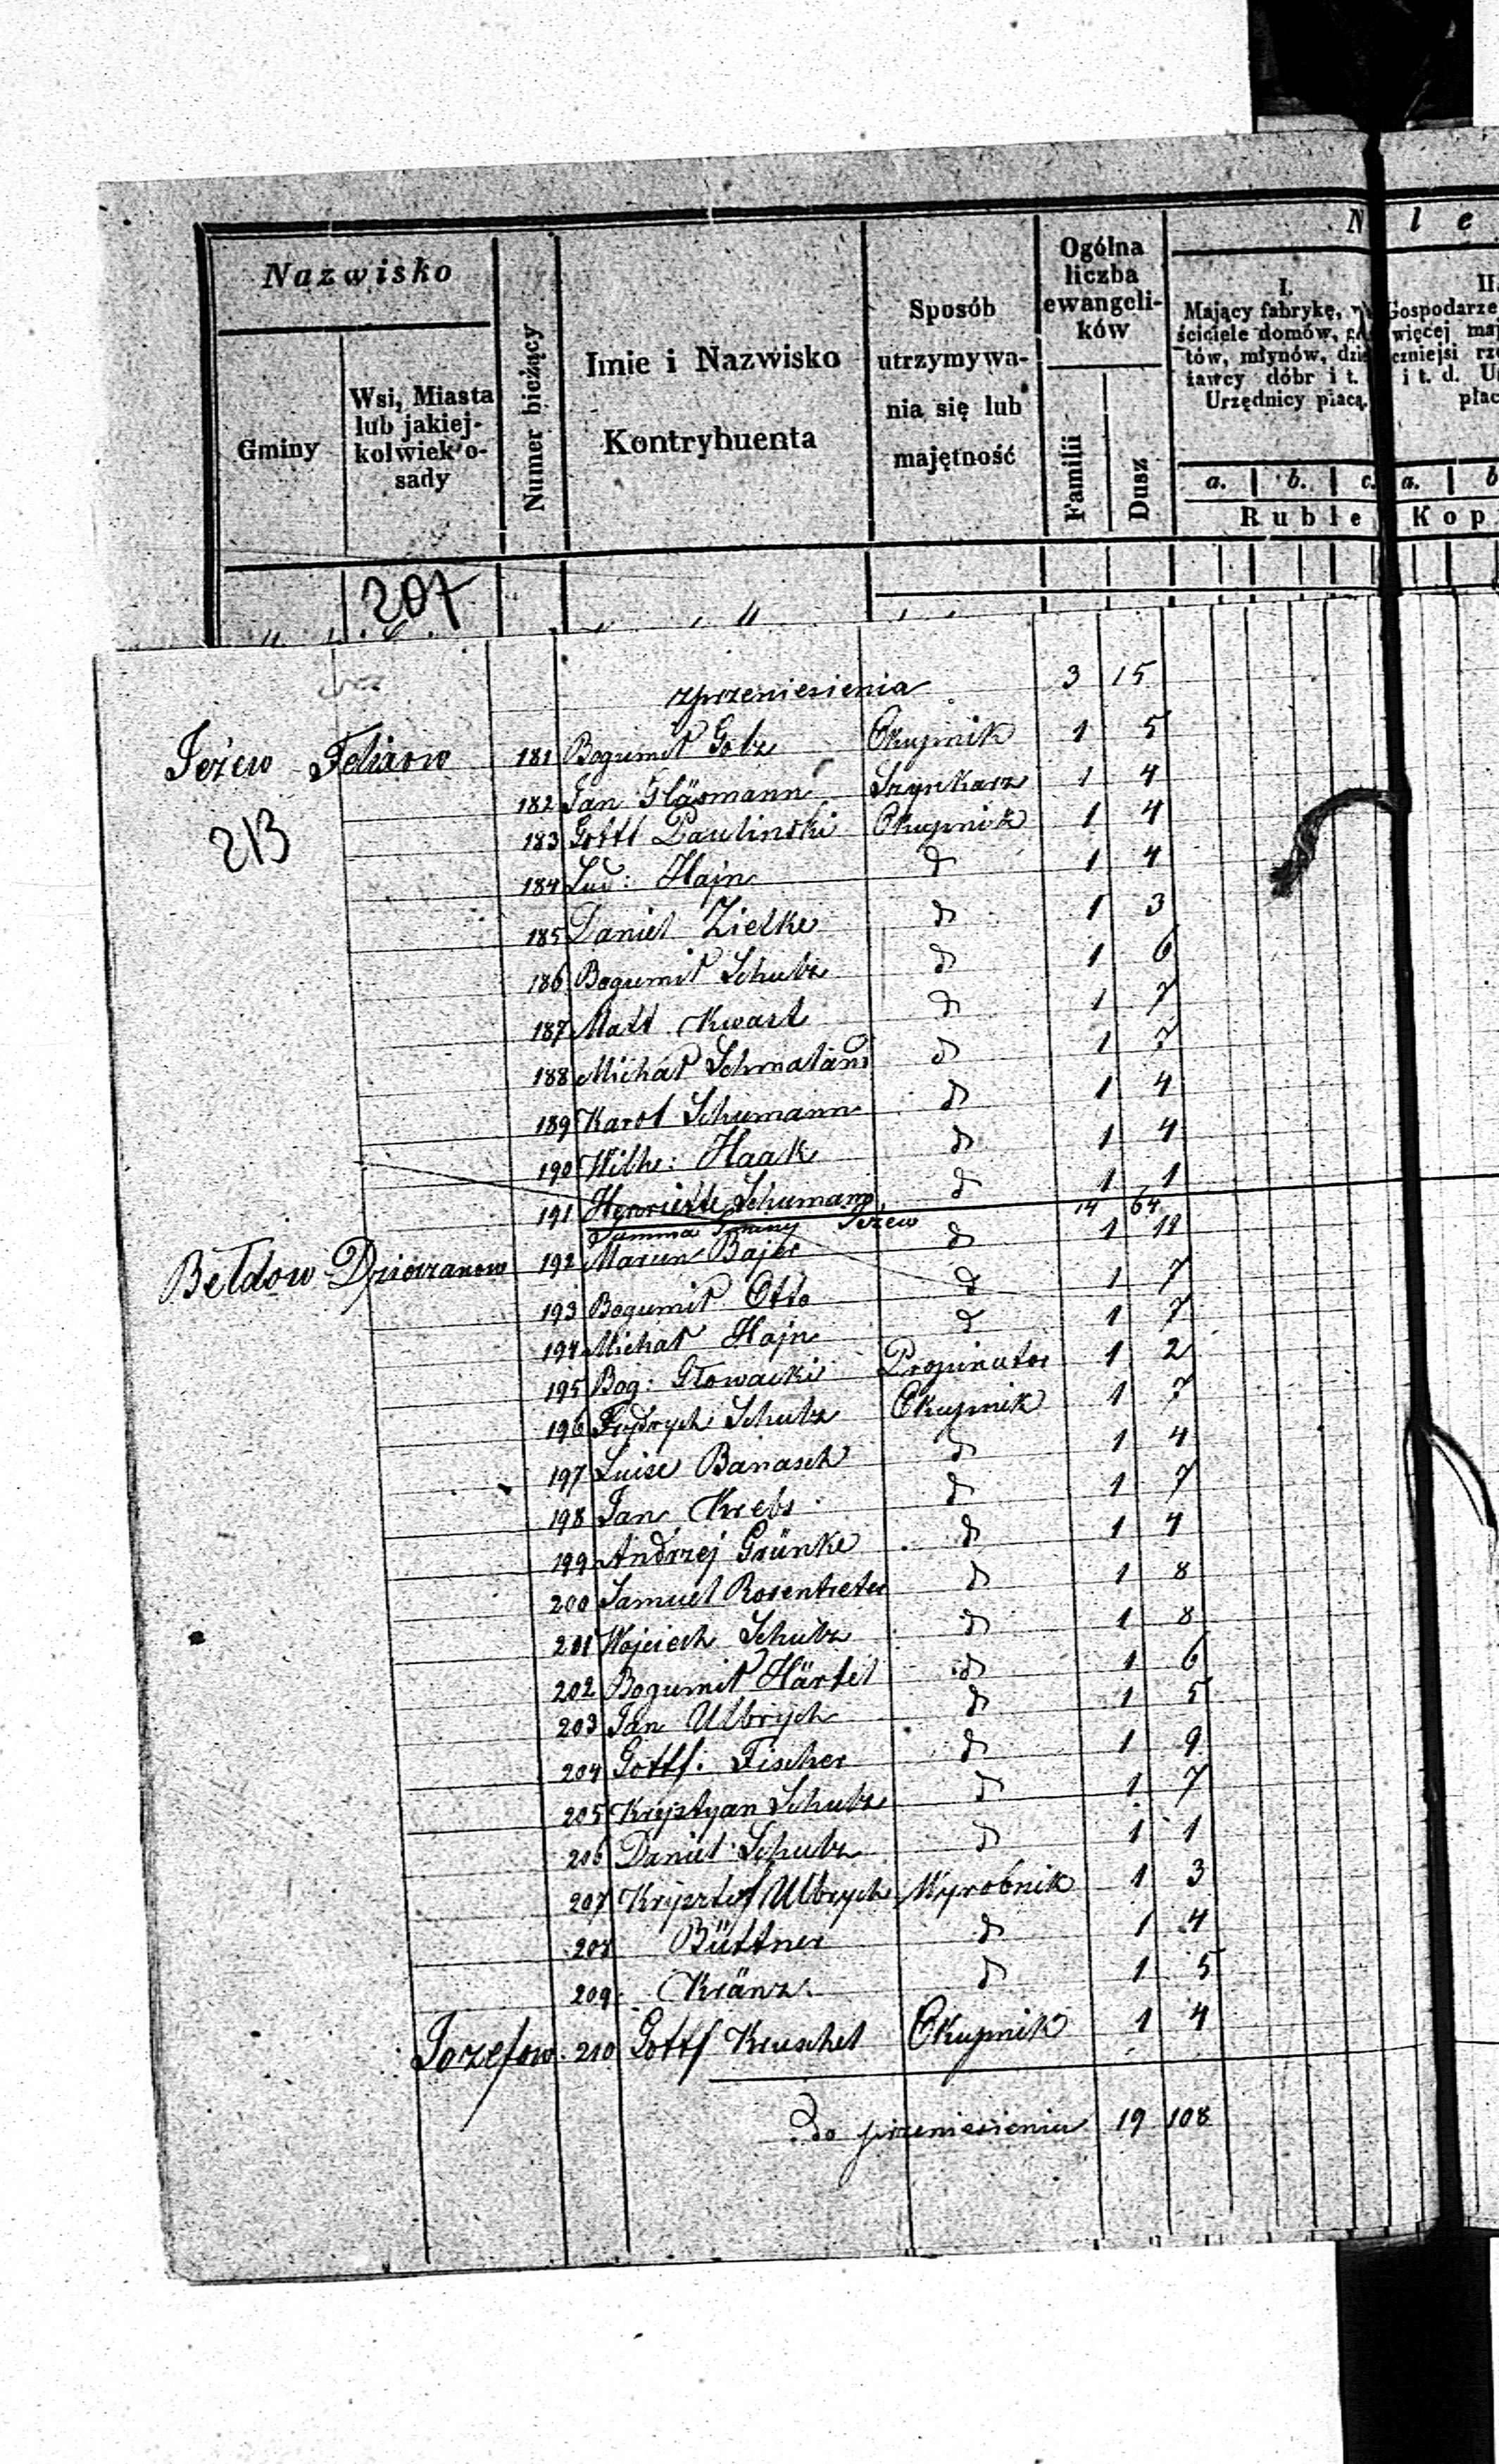 Nazwisko
Gminy
Wsi, Miasta
lub jakiej-
kolwiek o-
sady
Numer bieżący
Imie i Nazwisko
Kontrybuenta
Sposób
utrzymywa-
nia się lub
majętność
Ogólna
liczba
ewangeli-
ków
Familii
Dusz
N l e
I.
Mający fabrykę,
ściciele domów,
tów, młynów,
żawcy dóbr i t.
Urzędnicy płacą
II.
Gospodarze
więcej
czniejsi
i t. d.
a. b. c. a. b
Ruble Kop
207
z przeniesienia 3 15
Jeżew 181 Bogumił Golz Okupnik 1 5
213
182 Jan Gläsmann Szynkarz 1 4
183 Gottl Paulinski Okupnik 1 4
184 Lud: Hajn d 1 4
185 Daniel Zielke d 1 3
186 Bogumił Schulz d 1 6
187 Matt Kwast d 1 7
188 Michał d 1 7
189 Karol Schumann d 1 4
190 Wilh: Haak d 1 4
191 Henriette Schumann d 1 1
Summa Gminy Jeżew 14 64
Bełdow 192 Marcin Bajer d 1 11
193 Bogumił Otto d 1 7
194 Michał Hajn d 1 7
195 Bog: Głowacki Propinator 1 2
196 Frydrych Schulz Okupnik 1 7
197 Luise Banasch d 1 4
198 Jan Krebs d 1 7
199 Andrzej Grünke d 1 4
200 Samuel Rosentreter d 1 8
201 Wojciech Schulz d 1 8
202 Bogumił Härtel d 1 6
203 Jan Ulbrych d 1 5
204 Gottf: Fischer d 1 9
205 Krystyan Schulz d 1 7
206 Daniel Schulz d 1 1
207 Krysztof Ulbrych Wyrobnik 1 3
208 Büttner d 1 4
209 Kränz d 1 5
Jozefow 210 Gottf Kruschel Okupnik 1 4
Do przeniesienia 19 108